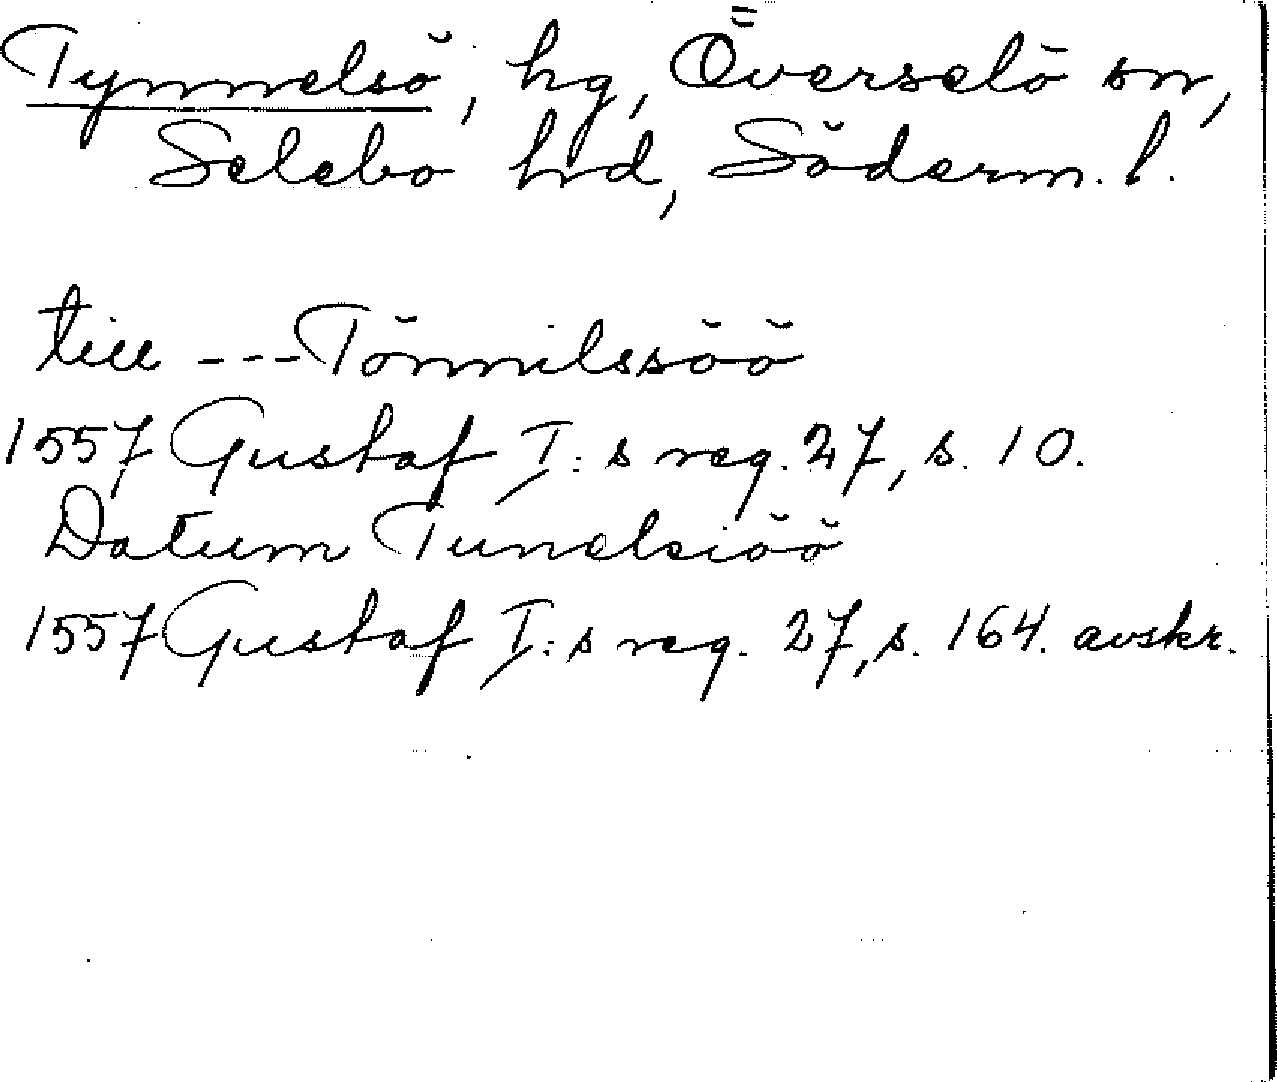 Tynnelsö, hg, Överselö sn,
Selebo hd, Söderm. l.
till --- Tönnilssöö
1557 Gustaf I:s reg. 27, s. 10.
Datum Tunelsiöö
1557 Gustaf I:s reg. 27, s. 164. avskr.